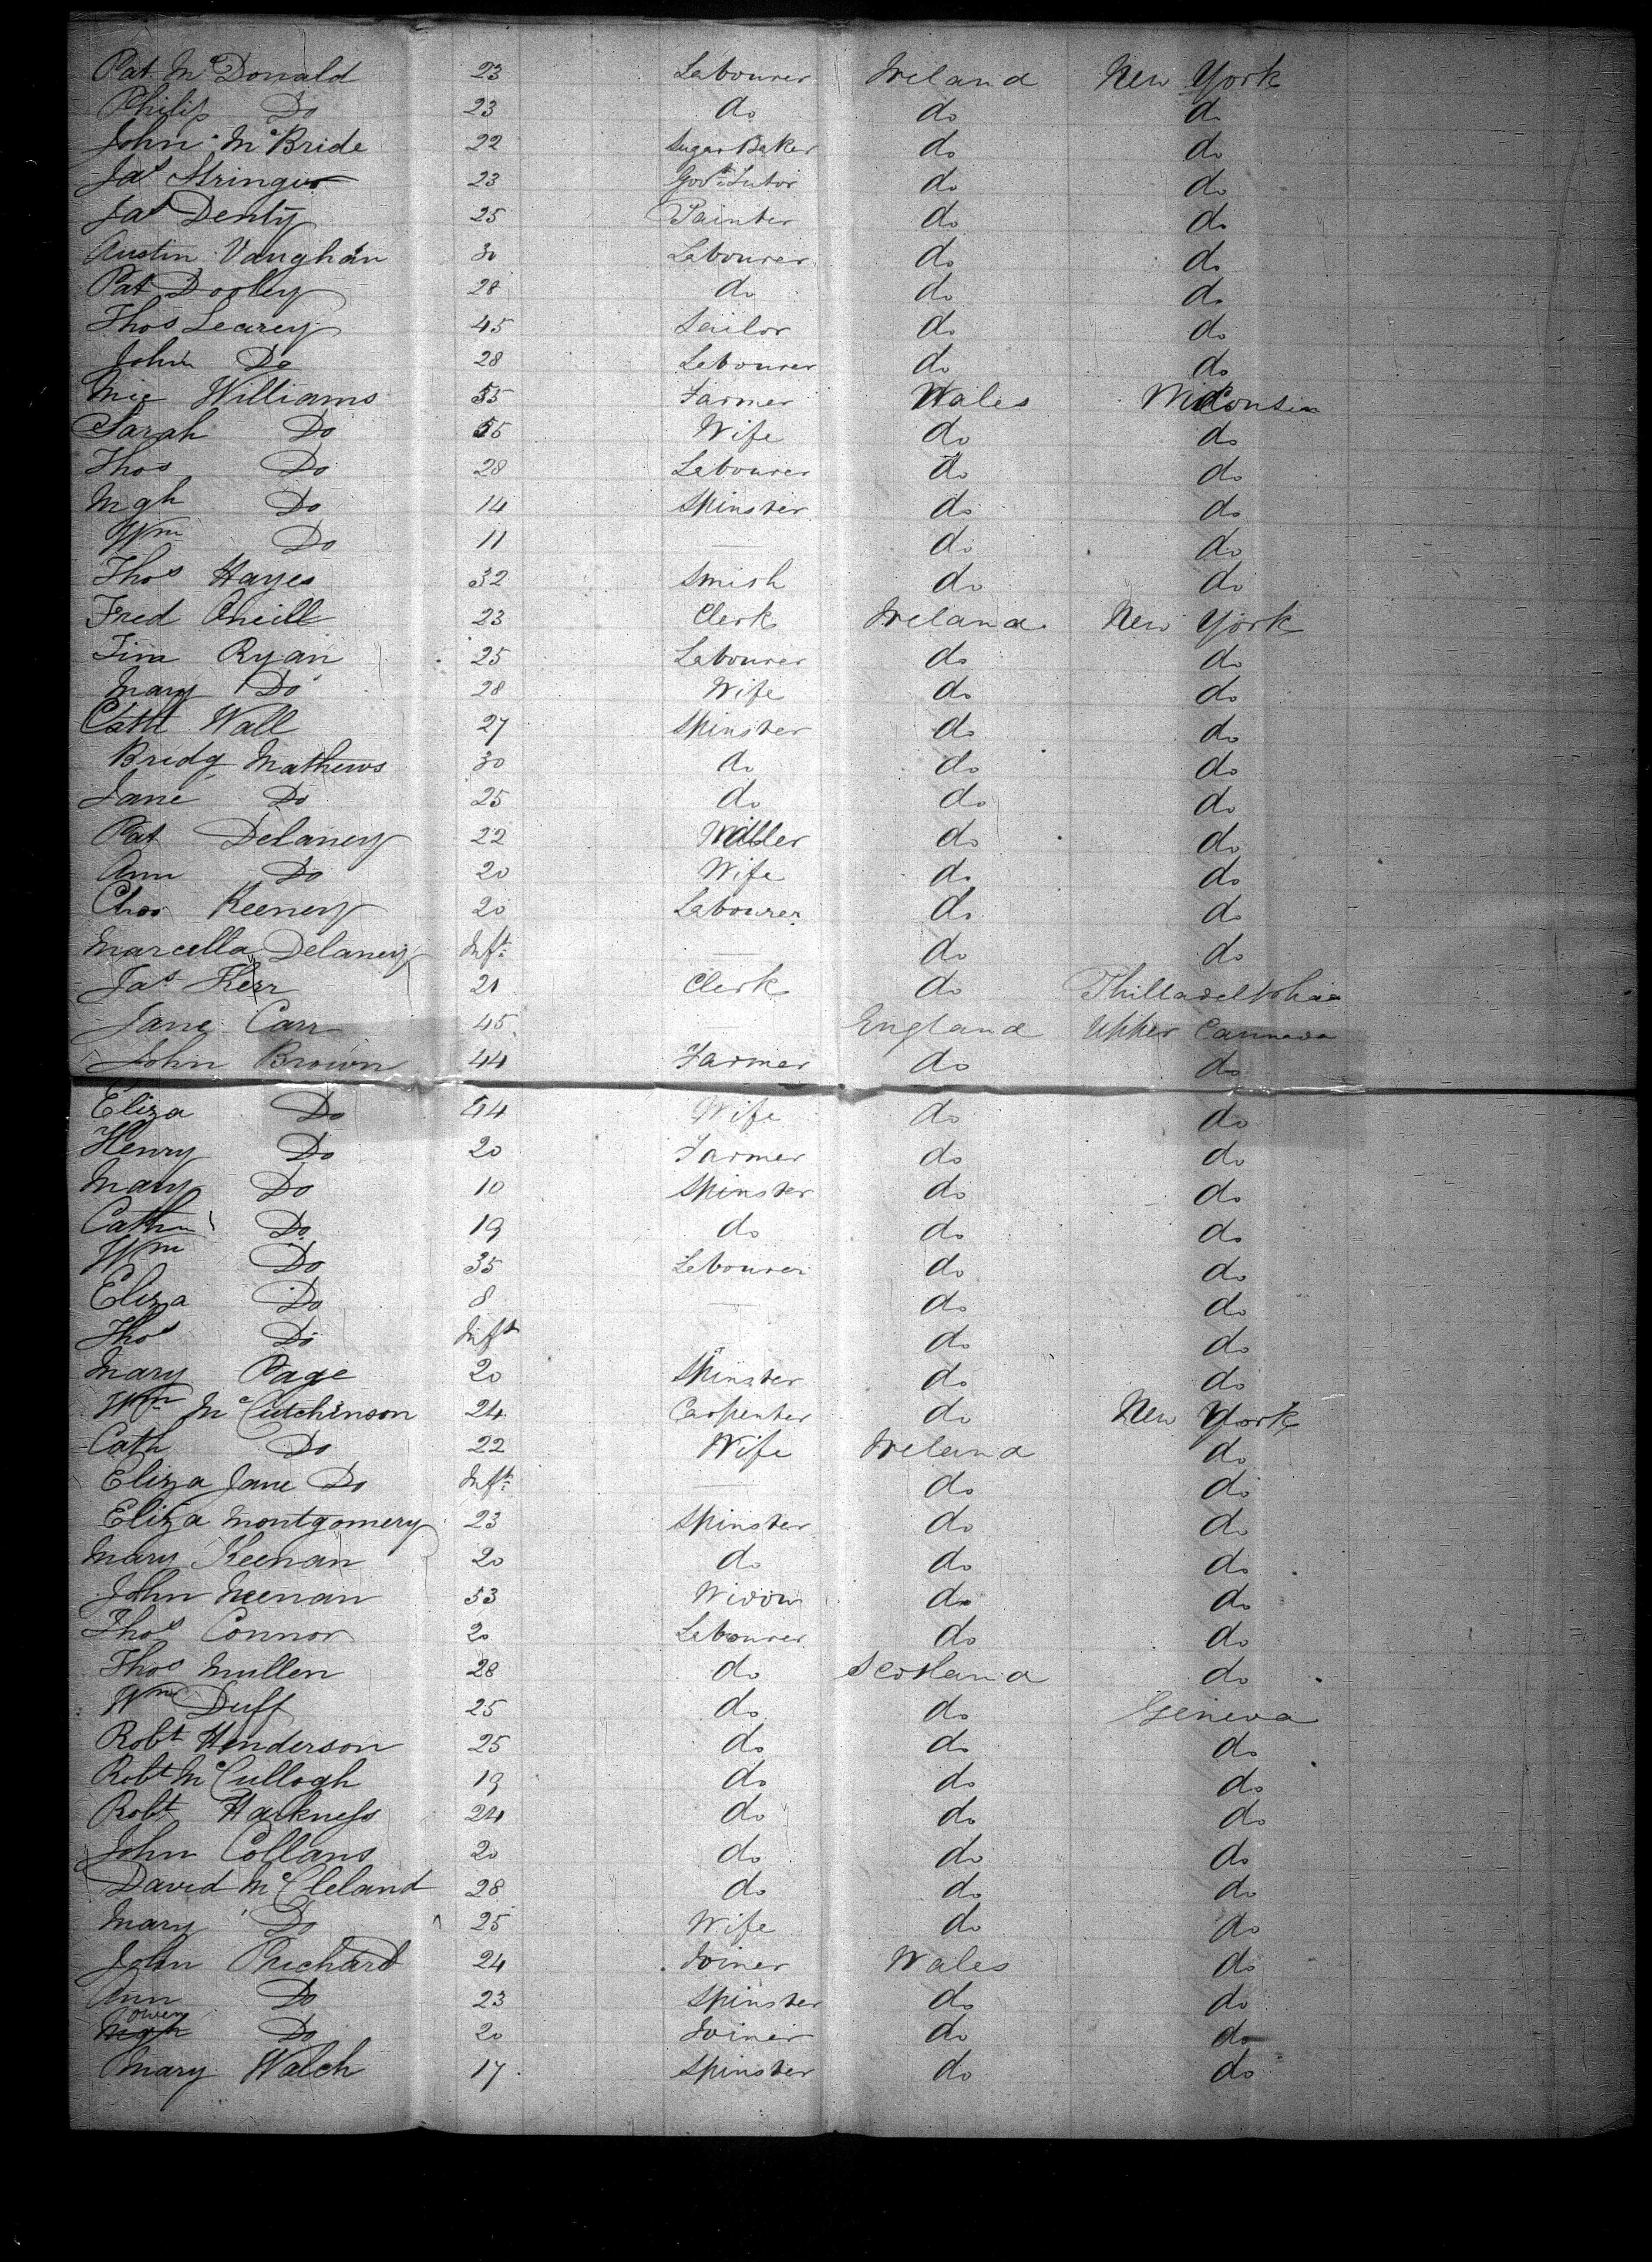 Pat McDonald 23 Labourer Ireland New York
Philip Do 23 do do do
John McBride 22 Sugar Baker do do
Jas Stringer 23 Govt Tutor do do
Jas Denty 25 Painter do do
Austin Vaughan 30 Labourer do do
Pat Dooley 28 do do do
Thos Learey 45 Sailor do do
John Do 28 Labourer do do
Mic Williams 55 Farmer Wales Wisconsin
Sarah Do 55 Wife do do
Thos Do 28 Labourer do do
Mgh Do 14 Spinster do do
Wm Do 11 — do do
Thos Hayes 32 Smish do do
Fred Oneill 23 Clerk Ireland New York
Tim Ryan 25 Labourer do do
Mary Do 28 Wife do do
Cath Wall 27 Spinster do do
Bridg Mathews 30 do do do
Jane Do 25 do do do
Pat Delaney 22 Miller do do
Ann Do 20 Wife do do
Chas Keeney 20 Labourer do do
Marcella Delaney Inft — do do
Jas Kerr 21 Clerk do Philladelphia
Jane Carr 45 England Upper Cannada
John Brown 44 Farmer do do
Eliza Do 44 Wife do do
Henry Do 20 Farmer do do
Mary Do 10 Spinster do do
Cathn Do 19 do do do
Wm Do 35 Labourer do do
Eliza Do 8 — do do
Thos Do Inft do do
Mary Page 20 Spinster do do
Wm McCutchinson 24 Carpenter do New York
Cath Do 22 Wife Ireland do
Eliza Jane Do Inft — do do
Eliza Montgomery 23 Spinster do do
Mary Keenan 20 do do do
John Keenan 53 Widow do do
Thos Connor 20 Labourer do do
Thos Mullen 28 do Scotland do
Wm Duff 25 do do Geneva
Robt Henderson 25 do do do
Robt McCullogh 19 do do do
Robt Harkness 24 do do do
John Collans 20 do do do
David McCleland 28 do do do
Mary Do 25 Wife do do
John Prichard 24 Joiner Wales do
Ann Do 23 Spinster do do
Owen Do 20 Joiner do do
Mary Walch 17 Spinster do do